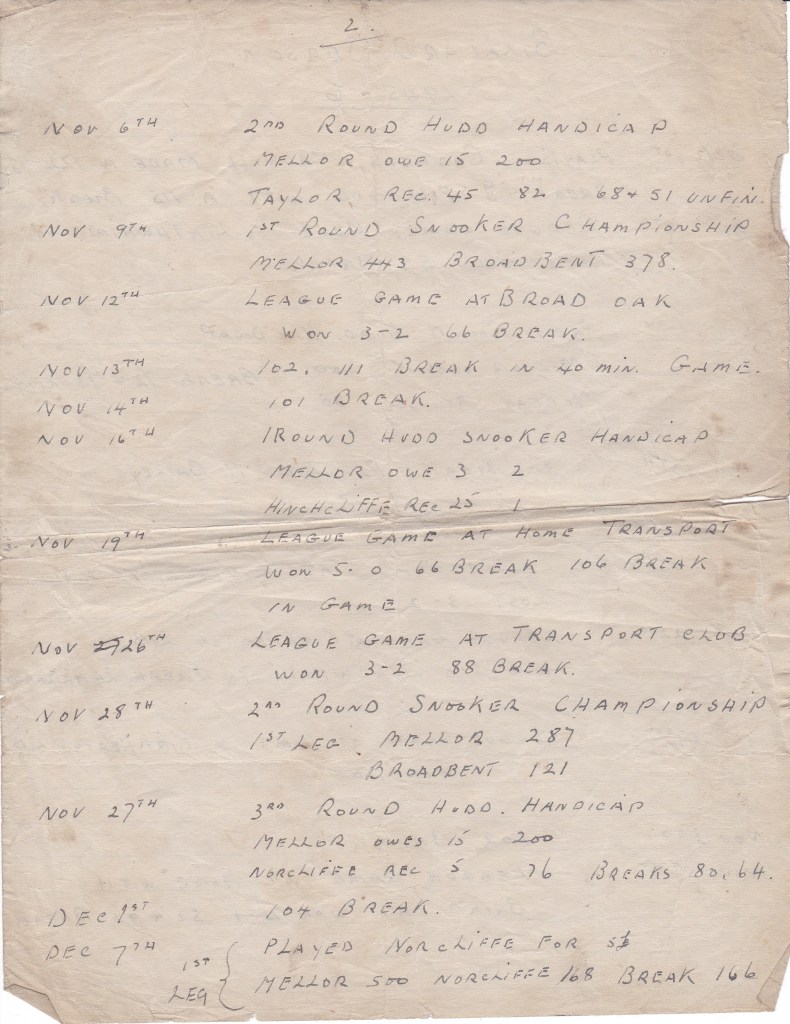 2.
NOV 6TH 2ND ROUND HUDD HANDICAP
MELLOR OWE 15 200
TAYLOR, REC. 45 82 68+51 UNFIN.
NOV 9TH 1ST ROUND SNOOKER CHAMPIONSHIP
MELLOR 443 BROADBENT 378.
NOV 12TH LEAGUE GAME AT BROAD OAK
WON 3-2 66 BREAK.
NOV 13TH 102, 111 BREAK IN 40 MIN. GAME.
NOV 14TH 101 BREAK.
NOV 16TH 1 ROUND HUDD SNOOKER HANDICAP
MELLOR OWE 3 2
HINCHCLIFFE REC 25 1
NOV 19TH LEAGUE GAME AT HOME TRANSPORT
WON 5-0 66 BREAK 106 BREAK
IN GAME
NOV 26TH LEAGUE GAME AT TRANSPORT CLUB
WON 3-2 88 BREAK.
NOV 28TH 2ND ROUND SNOOKER CHAMPIONSHIP
1ST LEG. MELLOR 287
BROADBENT 121
NOV 27TH 3RD ROUND HUDD. HANDICAP
MELLOR OWES 15 200
NORCLIFFE REC 5 76 BREAKS 80, 64.
DEC 1ST 104 BREAK.
DEC 7TH PLAYED NORCLIFFE FOR
1ST LEG MELLOR 500 NORCLIFFE 168 BREAK 166